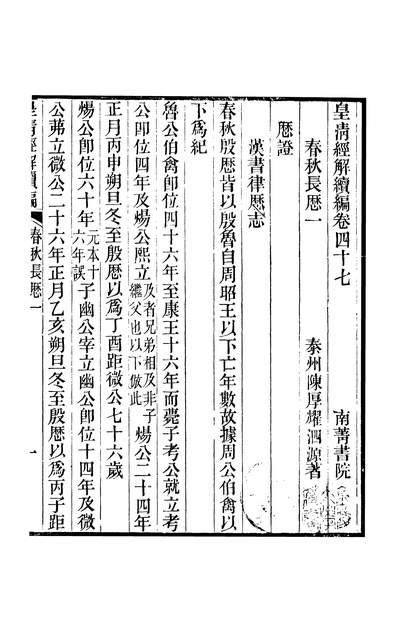 皇清經解續編卷四十七　南菁書院
春秋長厯一　泰州陳厚耀泗源著
厯證
漢書律厯志
春秋殷厯皆以殷魯自周昭王以下亡年數故據周公伯禽以
下爲紀
魯公伯禽卽位四十六年至康王十六年而薨子考公就立考
公卽位四年及煬公熙立及者兄弟相及非子繼父也以下倣此煬公二十四年
正月丙申朔旦冬至殷厯以爲丁酉距微公七十六歲
煬公卽位六十年元本十六年誤子幽公宰立幽公卽位十四年及微
公茀立微公二十六年正月乙亥朔旦冬至殷厯以爲丙子距
皇清經解續編　春秋長厯一　一